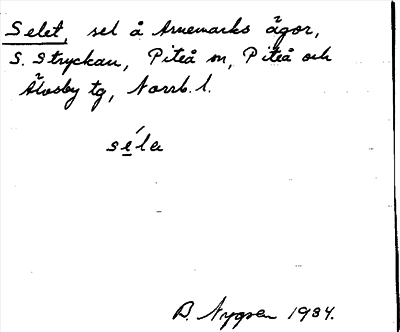 Selet, sel å Arnemarks ägor,
S. Stryckau, Piteå sn, Piteå och
Älvsby tg, Norrb. l.
sela
D. Nygren 1934.